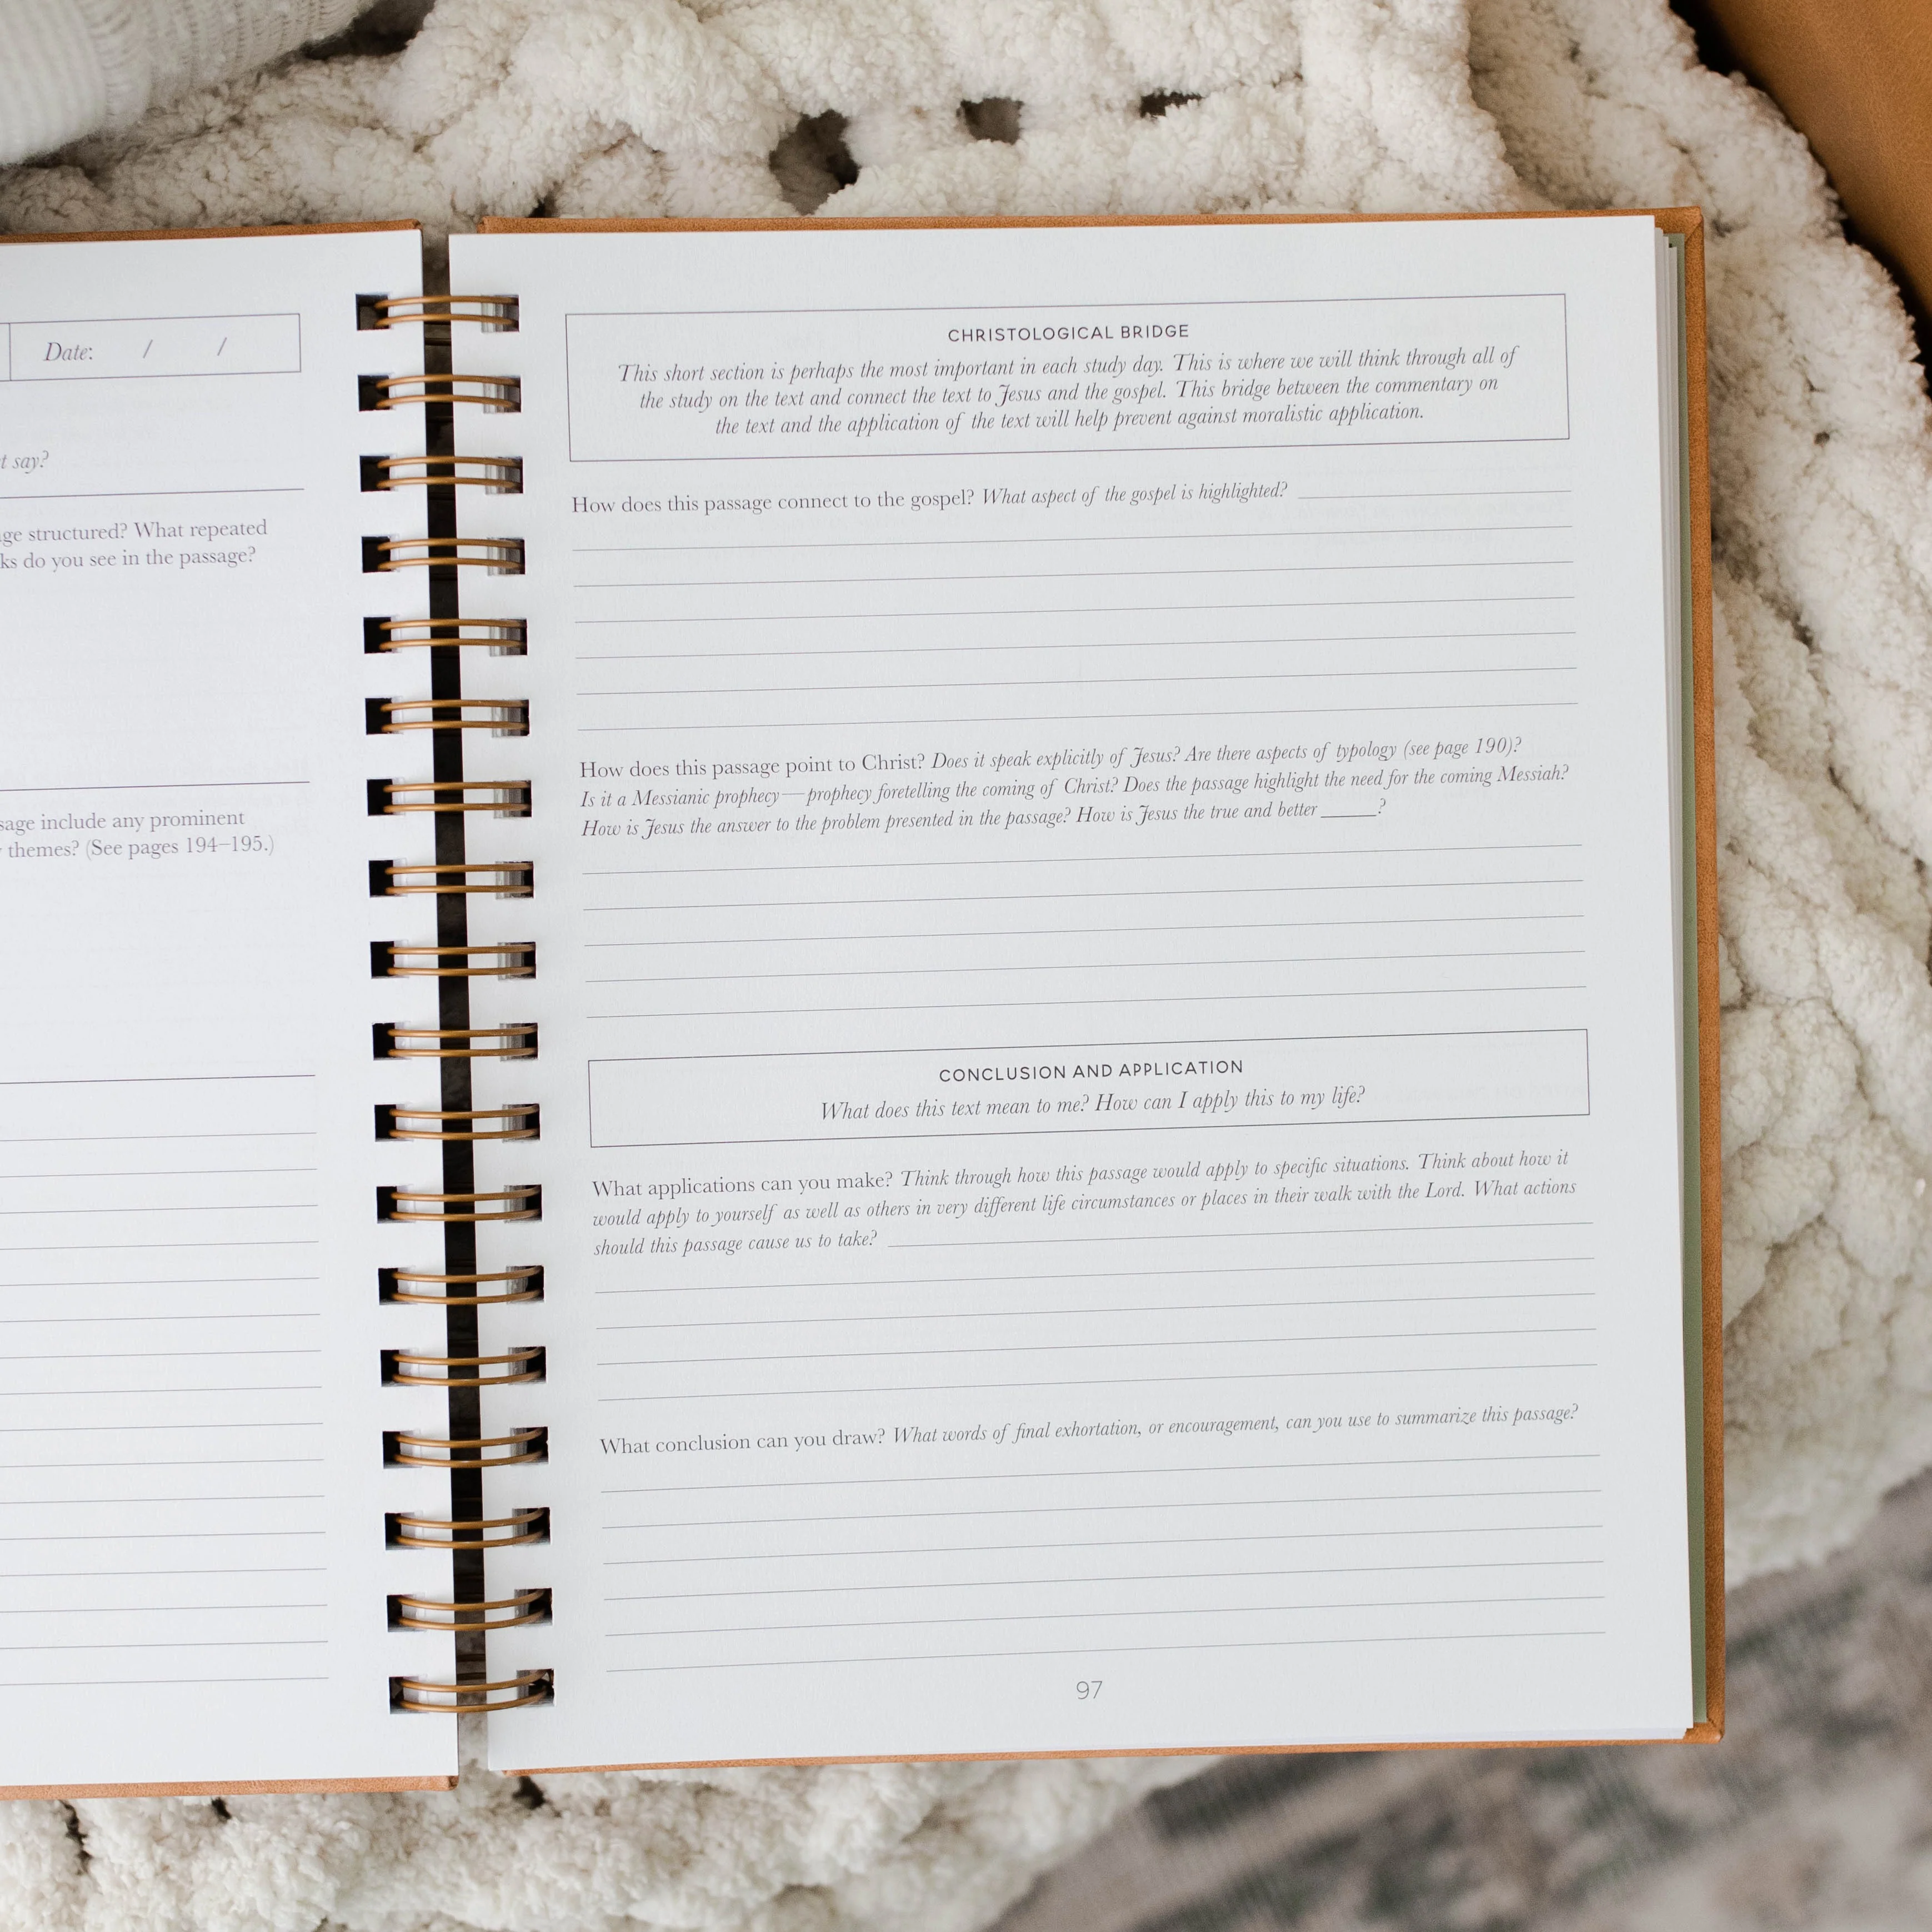 Date: / /
t say?
ge structured? What repeated
ks do you see in the passage?
sage include any prominent
themes? (See pages 194–195.)
CHRISTOLOGICAL BRIDGE
This short section is perhaps the most important in each study day. This is where we will think through all of
the study on the text and connect the text to Jesus and the gospel. This bridge between the commentary on
the text and the application of the text will help prevent against moralistic application.
How does this passage connect to the gospel? What aspect of the gospel is highlighted?
How does this passage point to Christ? Does it speak explicitly of Jesus? Are there aspects of typology (see page 190)?
Is it a Messianic prophecy—prophecy foretelling the coming of Christ? Does the passage highlight the need for the coming Messiah?
How is Jesus the answer to the problem presented in the passage? How is Jesus the true and better _____?
CONCLUSION AND APPLICATION
What does this text mean to me? How can I apply this to my life?
What applications can you make? Think through how this passage would apply to specific situations. Think about how it
would apply to yourself as well as others in very different life circumstances or places in their walk with the Lord. What actions
should this passage cause us to take?
What conclusion can you draw? What words of final exhortation, or encouragement, can you use to summarize this passage?
97